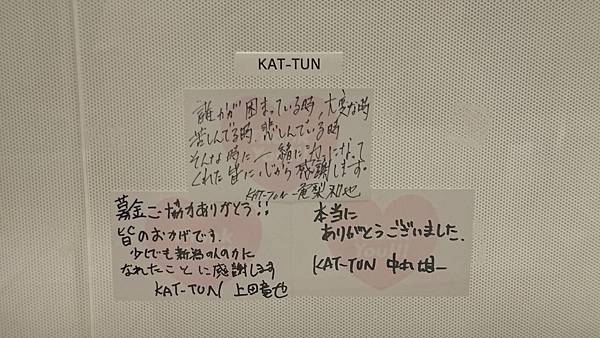 KAT-TUN
誰かが困っている時、大変な時
苦しんでる時、悲しんでいる時
そんな時に一緒に力になって
くれた皆に心から感謝します。
KAT-TUN 亀梨和也
募金ご協力ありがとう!!
皆のおかげです。
少しでも新潟の人の力に
なれたことに感謝します
KAT-TUN 上田竜也
本当に
ありがとうございました。
KAT-TUN 中丸雄一
Thank
You!!!